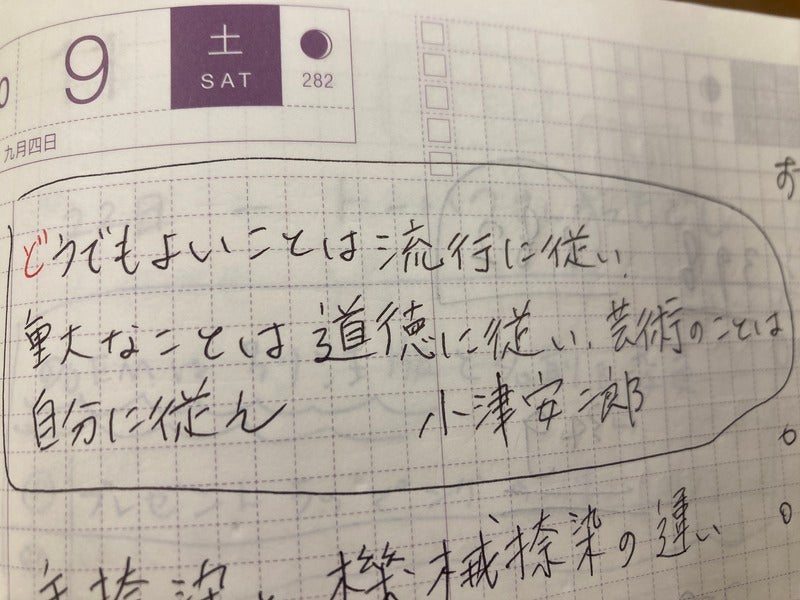 9
土
SAT
282
九月四日
どうでもよいことは流行に従い、
重大なことは道徳に従い、芸術のことは
自分に従ん
小津安二郎
機械捺染の違い